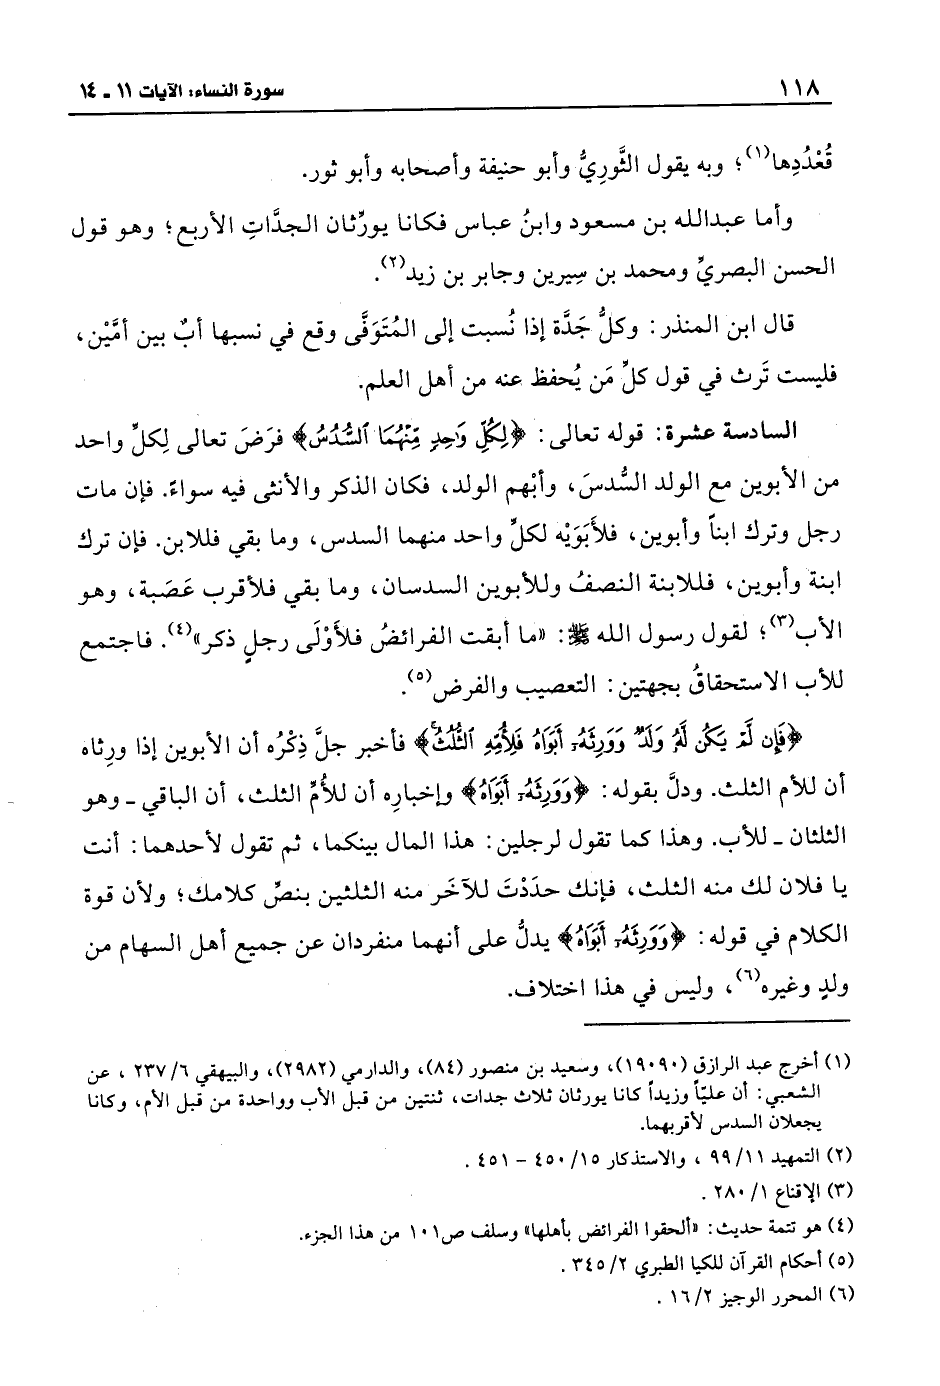 ١١٨
سورة النساء: الآيات ١١ - ١٤
قُعْدُدِها(١)؛ وبه يقول الثَّورِيُّ وأبو حنيفة وأصحابه وأبو ثور.
وأما عبدالله بن مسعود وابنُ عباس فكانا يورِّثان الجدَّاتِ الأربع؛ وهو قول
الحسن البصريِّ ومحمد بن سِيرين وجابر بن زيد(٢).
قال ابن المنذر: وكلُّ جَدَّة إذا نُسبت إلى المُتَوَفَّى وقع في نسبها أبٌ بين أمَّيْن،
فليست تَرث في قول كلِّ مَن يُحفظ عنه من أهل العلم.
السادسة عشرة: قوله تعالى: ﴿لِكُلِّ وَٰحِدٍ مِّنْهُمَا ٱلسُّدُسُ﴾ فرَضَ تعالى لِكلِّ واحد
من الأبوين مع الولد السُّدسَ، وأبْهم الولد، فكان الذكر والأنثى فيه سواءً. فإن مات
رجل وترك ابناً وأبوين، فلأَبَوَيْه لكلِّ واحد منهما السدس، وما بقي فللابن. فإن ترك
ابنة وأبوين، فللابنة النصفُ وللأبوين السدسان، وما بقي فلأقرب عَصَبة، وهو
الأب(٣)؛ لقول رسول الله ﷺ: «ما أبقت الفرائضُ فلأَوْلَى رجلٍ ذكر»(٤). فاجتمع
للأب الاستحقاقُ بجهتين: التعصيب والفرض(٥).
﴿فَإِن لَّمْ يَكُن لَّهُۥ وَلَدٌ وَوَرِثَهُۥٓ أَبَوَاهُ فَلِأُمِّهِ ٱلثُّلُثُۚ﴾ فأخبر جلَّ ذِكْرُه أن الأبوين إذا ورِثاه
أن للأم الثلث. ودلَّ بقوله: ﴿وَوَرِثَهُۥٓ أَبَوَاهُ﴾ وإخبارِه أن للأُمِّ الثلث، أن الباقي - وهو
الثلثان - للأب. وهذا كما تقول لرجلين: هذا المال بينكما، ثم تقول لأحدهما: أنت
يا فلان لك منه الثلث، فإنك حدَدْتَ للآخَر منه الثلثين بنصِّ كلامك؛ ولأن قوة
الكلام في قوله: ﴿وَوَرِثَهُۥٓ أَبَوَاهُ﴾ يدلُّ على أنهما منفردان عن جميع أهل السهام من
ولدٍ وغيره(٦)، وليس في هذا اختلاف.
(١) أخرج عبد الرازق (١٩٠٩٠)، وسعيد بن منصور (٨٤)، والدارمي (٢٩٨٢)، والبيهقي ٦/ ٢٣٧ ، عن
الشعبي: أن عليّاً وزيداً كانا يورثان ثلاث جدات، ثنتين من قبل الأب وواحدة من قبل الأم، وكانا
يجعلان السدس لأقربهما.
(٢) التمهيد ١١/ ٩٩ ، والاستذكار ١٥/ ٤٥٠ - ٤٥١ .
(٣) الإقناع ١/ ٢٨٠ .
(٤) هو تتمة حديث: «ألحقوا الفرائض بأهلها» وسلف ص١٠١ من هذا الجزء.
(٥) أحكام القرآن للكيا الطبري ٢/ ٣٤٥ .
(٦) المحرر الوجيز ٢/ ١٦ .